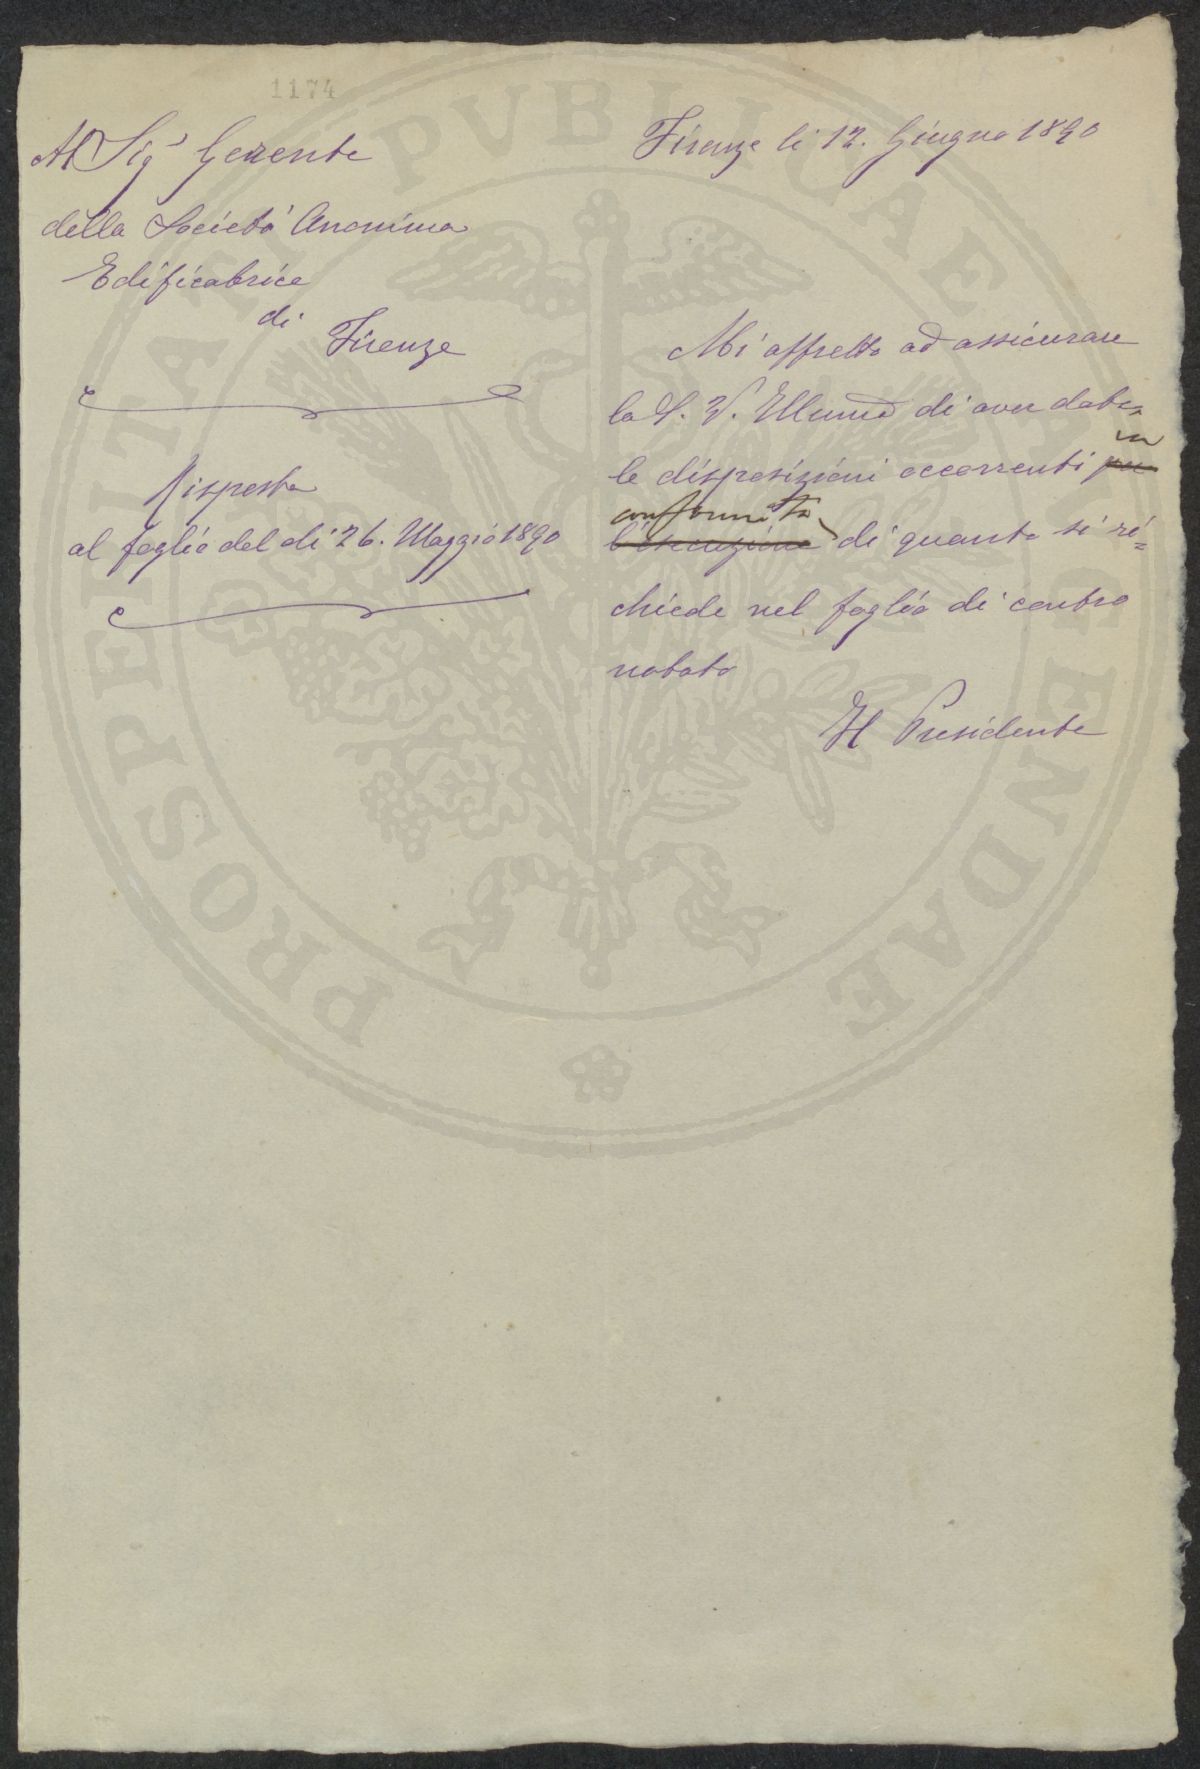 1174
Al Sigr Gerente
della Società Anonima
Edificatrice
di
Firenze
Risposta
al foglio del dì 26. Maggio 1890
Firenze li 12. Giugno 1890
Mi affretto ad assicurare
la S. V. Illuma di aver date
in
le disposizioni occorrenti per
conformità
l'esecuzione di quanto si ri=
chiede nel foglio di contro
notato
Il Presidente
PROSPERITATE PUBLICAE AUGENDAE